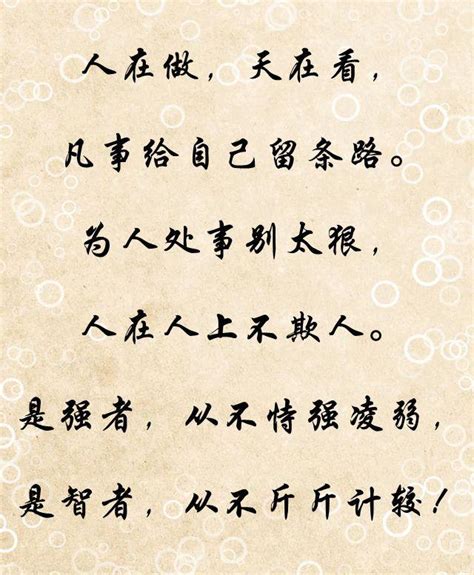 人在做，天在看，
凡事给自己留条路。
为人处事别太狠，
人在人上不欺人。
是强者，从不恃强凌弱，
是智者，从不斤斤计较！